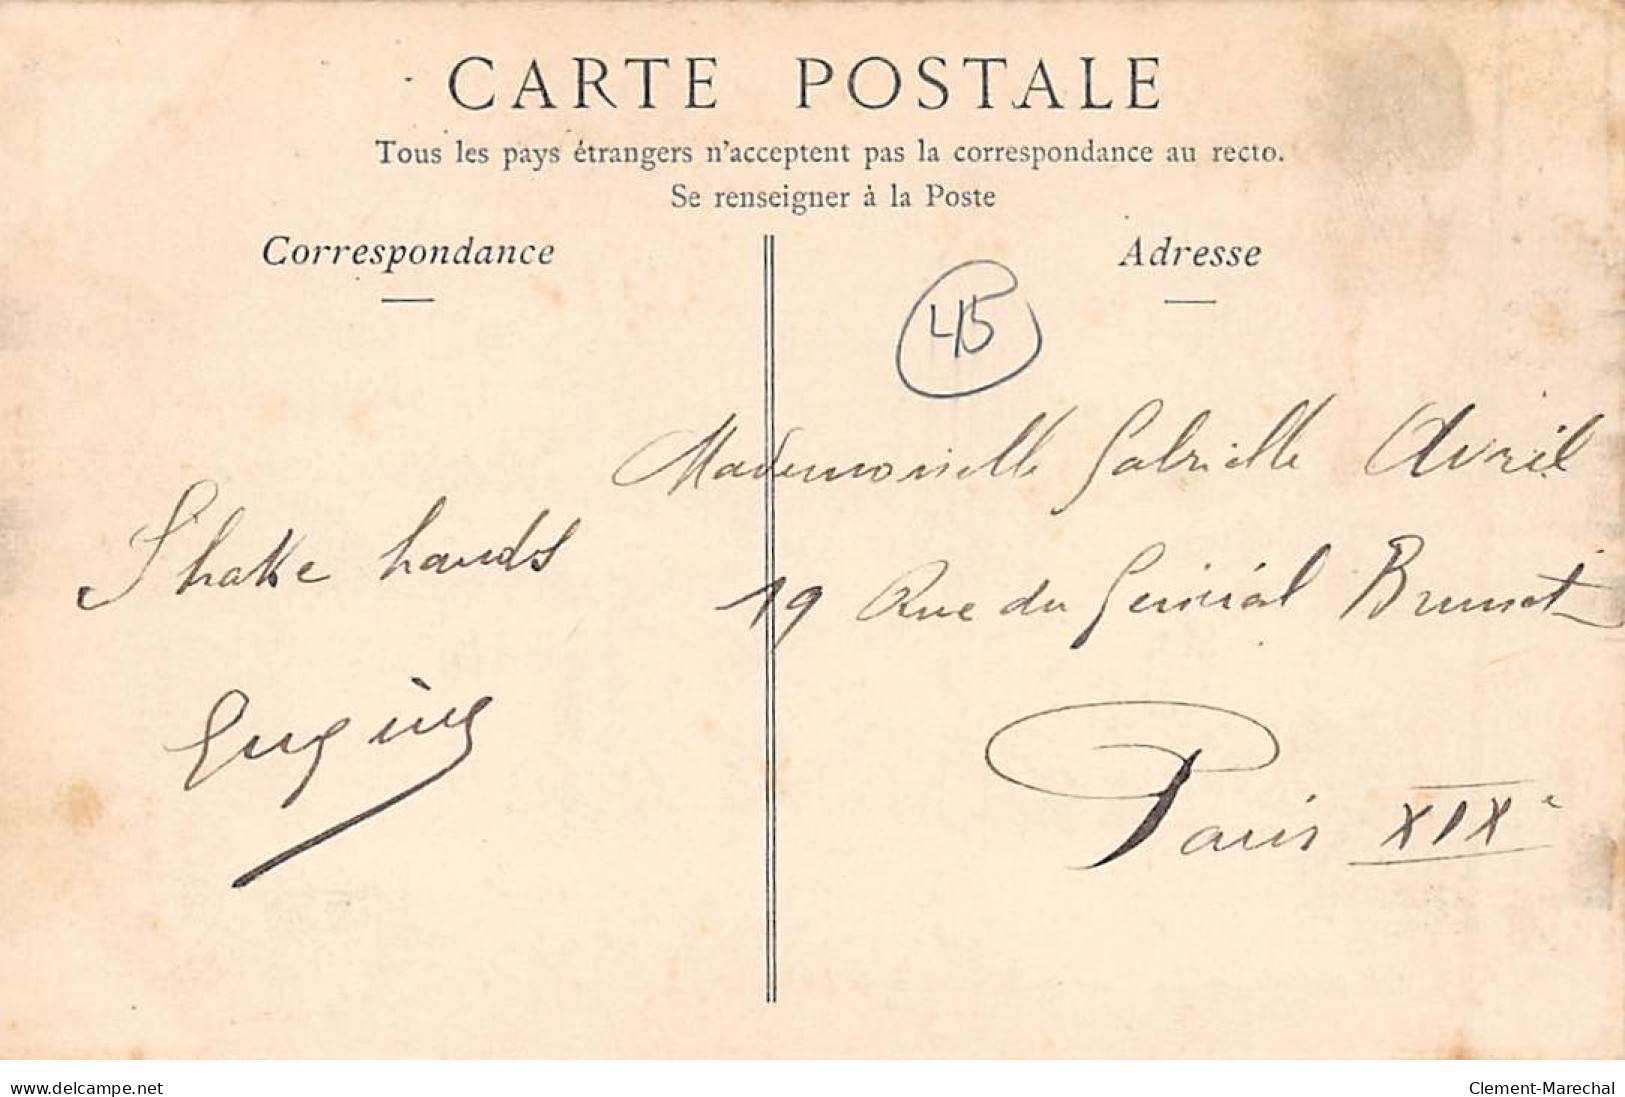 CARTE POSTALE
Tous les pays étrangers n'acceptent pas la correspondance au recto.
Se renseigner à la Poste
Correspondance
Adresse
45
Mademoiselle Gabrielle Avril
19 Rue du Général Brunet
Paris XIXe
Shake hands
Eugène
www.delcampe.net
Clement-Marechal